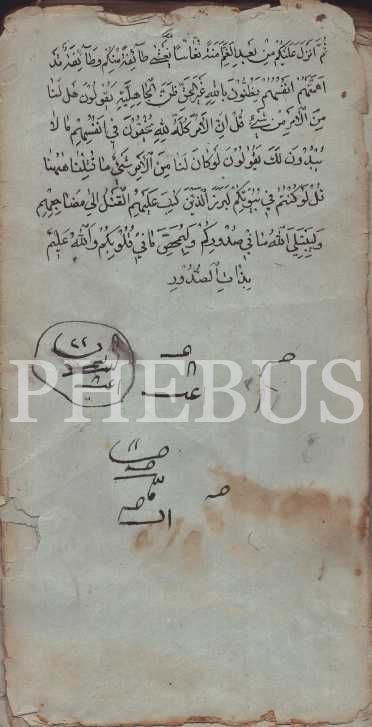 ثم انزل عليكم من بعد الغم امنة نعاسا يغشى طائفة منكم وطائفة قد
اهمتهم انفسهم يظنون بالله غير الحق ظن الجاهلية يقولون هل لنا
من الامر من شيء قل ان الامر كله لله يخفون في انفسهم ما لا
يبدون لك يقولون لو كان لنا من الامر شيء ما قتلنا ههنا
قل لو كنتم في بيوتكم لبرز الذين كتب عليهم القتل الى مضاجعهم
وليبتلي الله ما في صدوركم وليمحص ما في قلوبكم والله عليم
بذات الصدور
PHEBUS